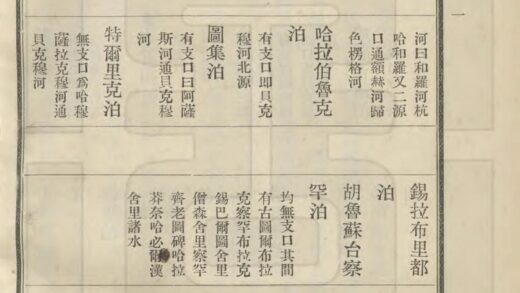 一
河曰和羅河杭
哈和羅又二源
口通額赫河歸
色楞格河
哈拉伯魯克
泊
有支口即貝克
穆河北源
圖集泊
有支口曰阿薩
斯河通貝克穆
河
特爾里克泊
無支口爲哈穆
薩拉克穆河通
貝克穆河
錫拉布里都
泊
胡魯蘇台察
罕泊
均無支口其間
有古圖爾布拉
克察罕布拉克
錫巴爾圖舍里
僧森舍里察罕
齊老圖碑哈拉
莽奈哈必爾漢
舍里諸水